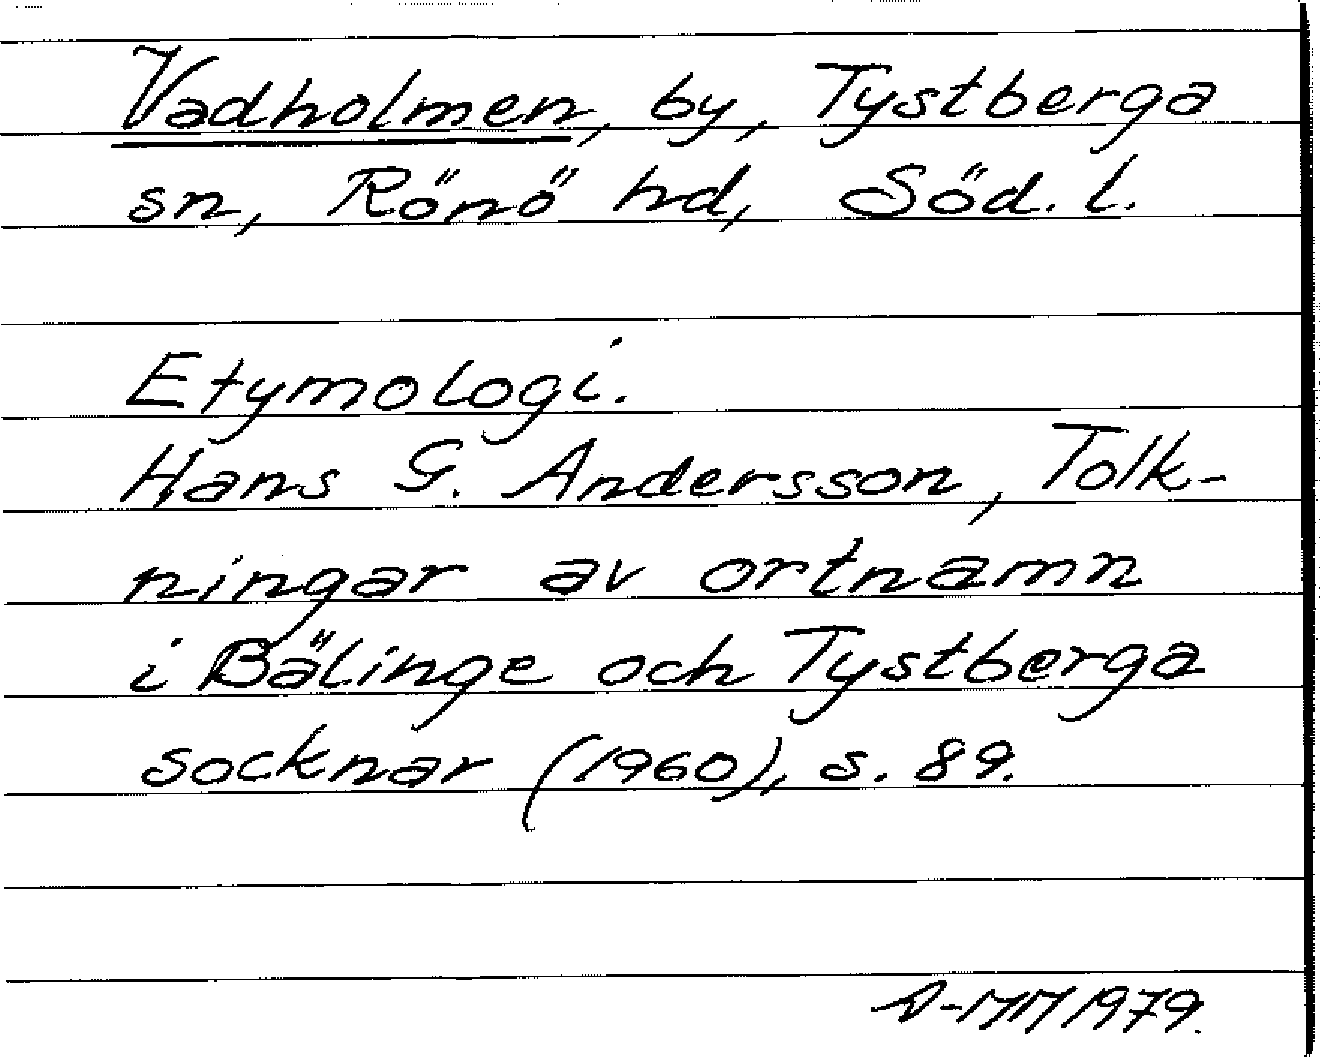 Vadholmen, by, Tystberga
sn, Rönö hd, Söd. l.
Etymologi.
Hans G. Andersson, Tolk-
ningar av ortnamn
i Bälinge och Tystberga
socknar (1960), s. 89.
1979.